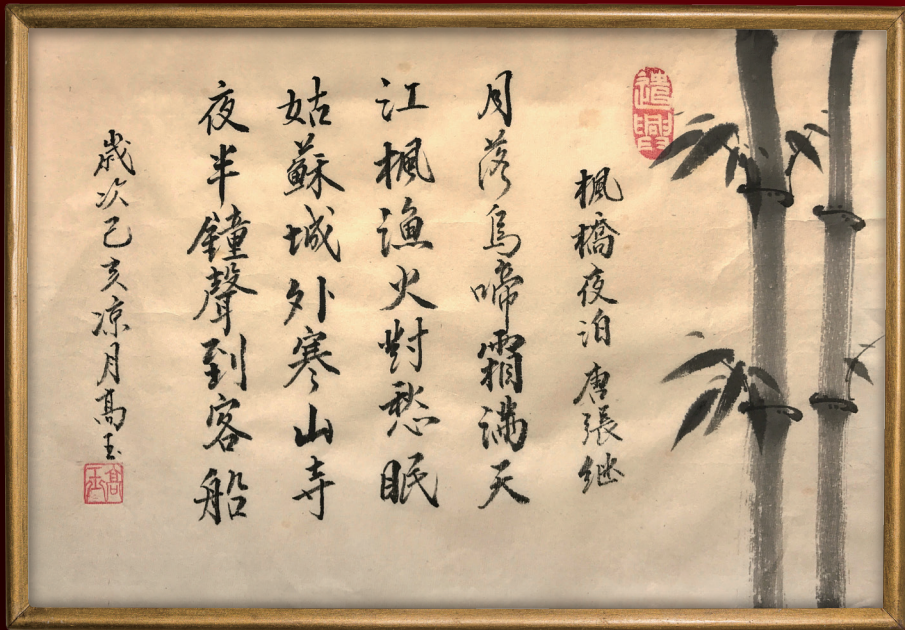 遣興
楓橋夜泊 唐 張継
月落烏啼霜満天
江楓漁火對愁眠
姑蘇城外寒山寺
夜半鐘聲到客船
歲次己亥凉月高玉
高玉